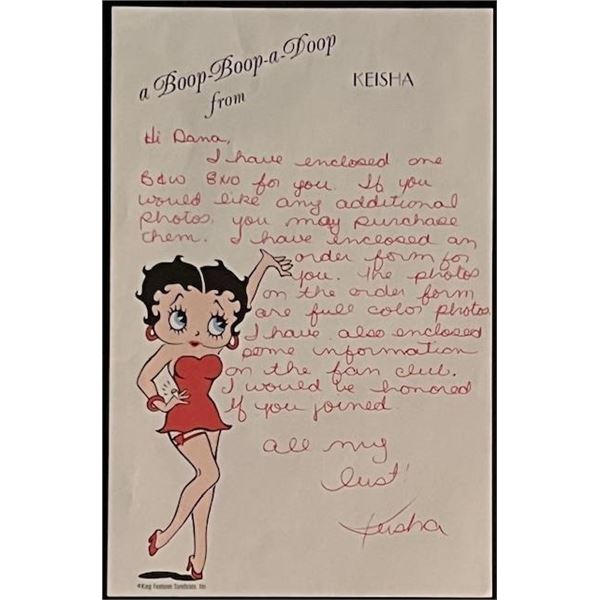 a Boop-Boop-a-Doop
from
KEISHA
Hi Dana,
I have enclosed one
B&W 8x10 for you. If you
would like any additional
photos, you may purchase
them. I have enclosed an
order form for
you. The photos
on the order form
are full color photos.
I have also enclosed
some information
on the fan club.
I would be honored
if you joined.
all my
lust!
Keisha
©King Features Syndicate, Inc